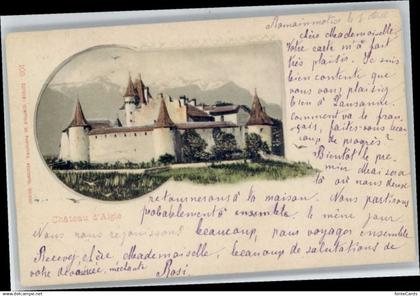 Romainmotier le 5 Août
Chère Mademoiselle,
Votre carte m'a fait
très plaisir. Je suis
bien contente que
vous vous plaisiez
bien à Lausanne.
Comment va le fran-
çais, faites-vous beau-
coup de progrès.
Bientôt le pre-
mier mai sera
là où nous deux
retournerons à la maison. Nous partirons
probablement ensemble le même jour
Nous nous réjouissons beaucoup, pour voyager ensemble.
Recevez, chère Mademoiselle, beaucoup de salutations de
votre dévouée,
Rosi
Château d'Aigle
105